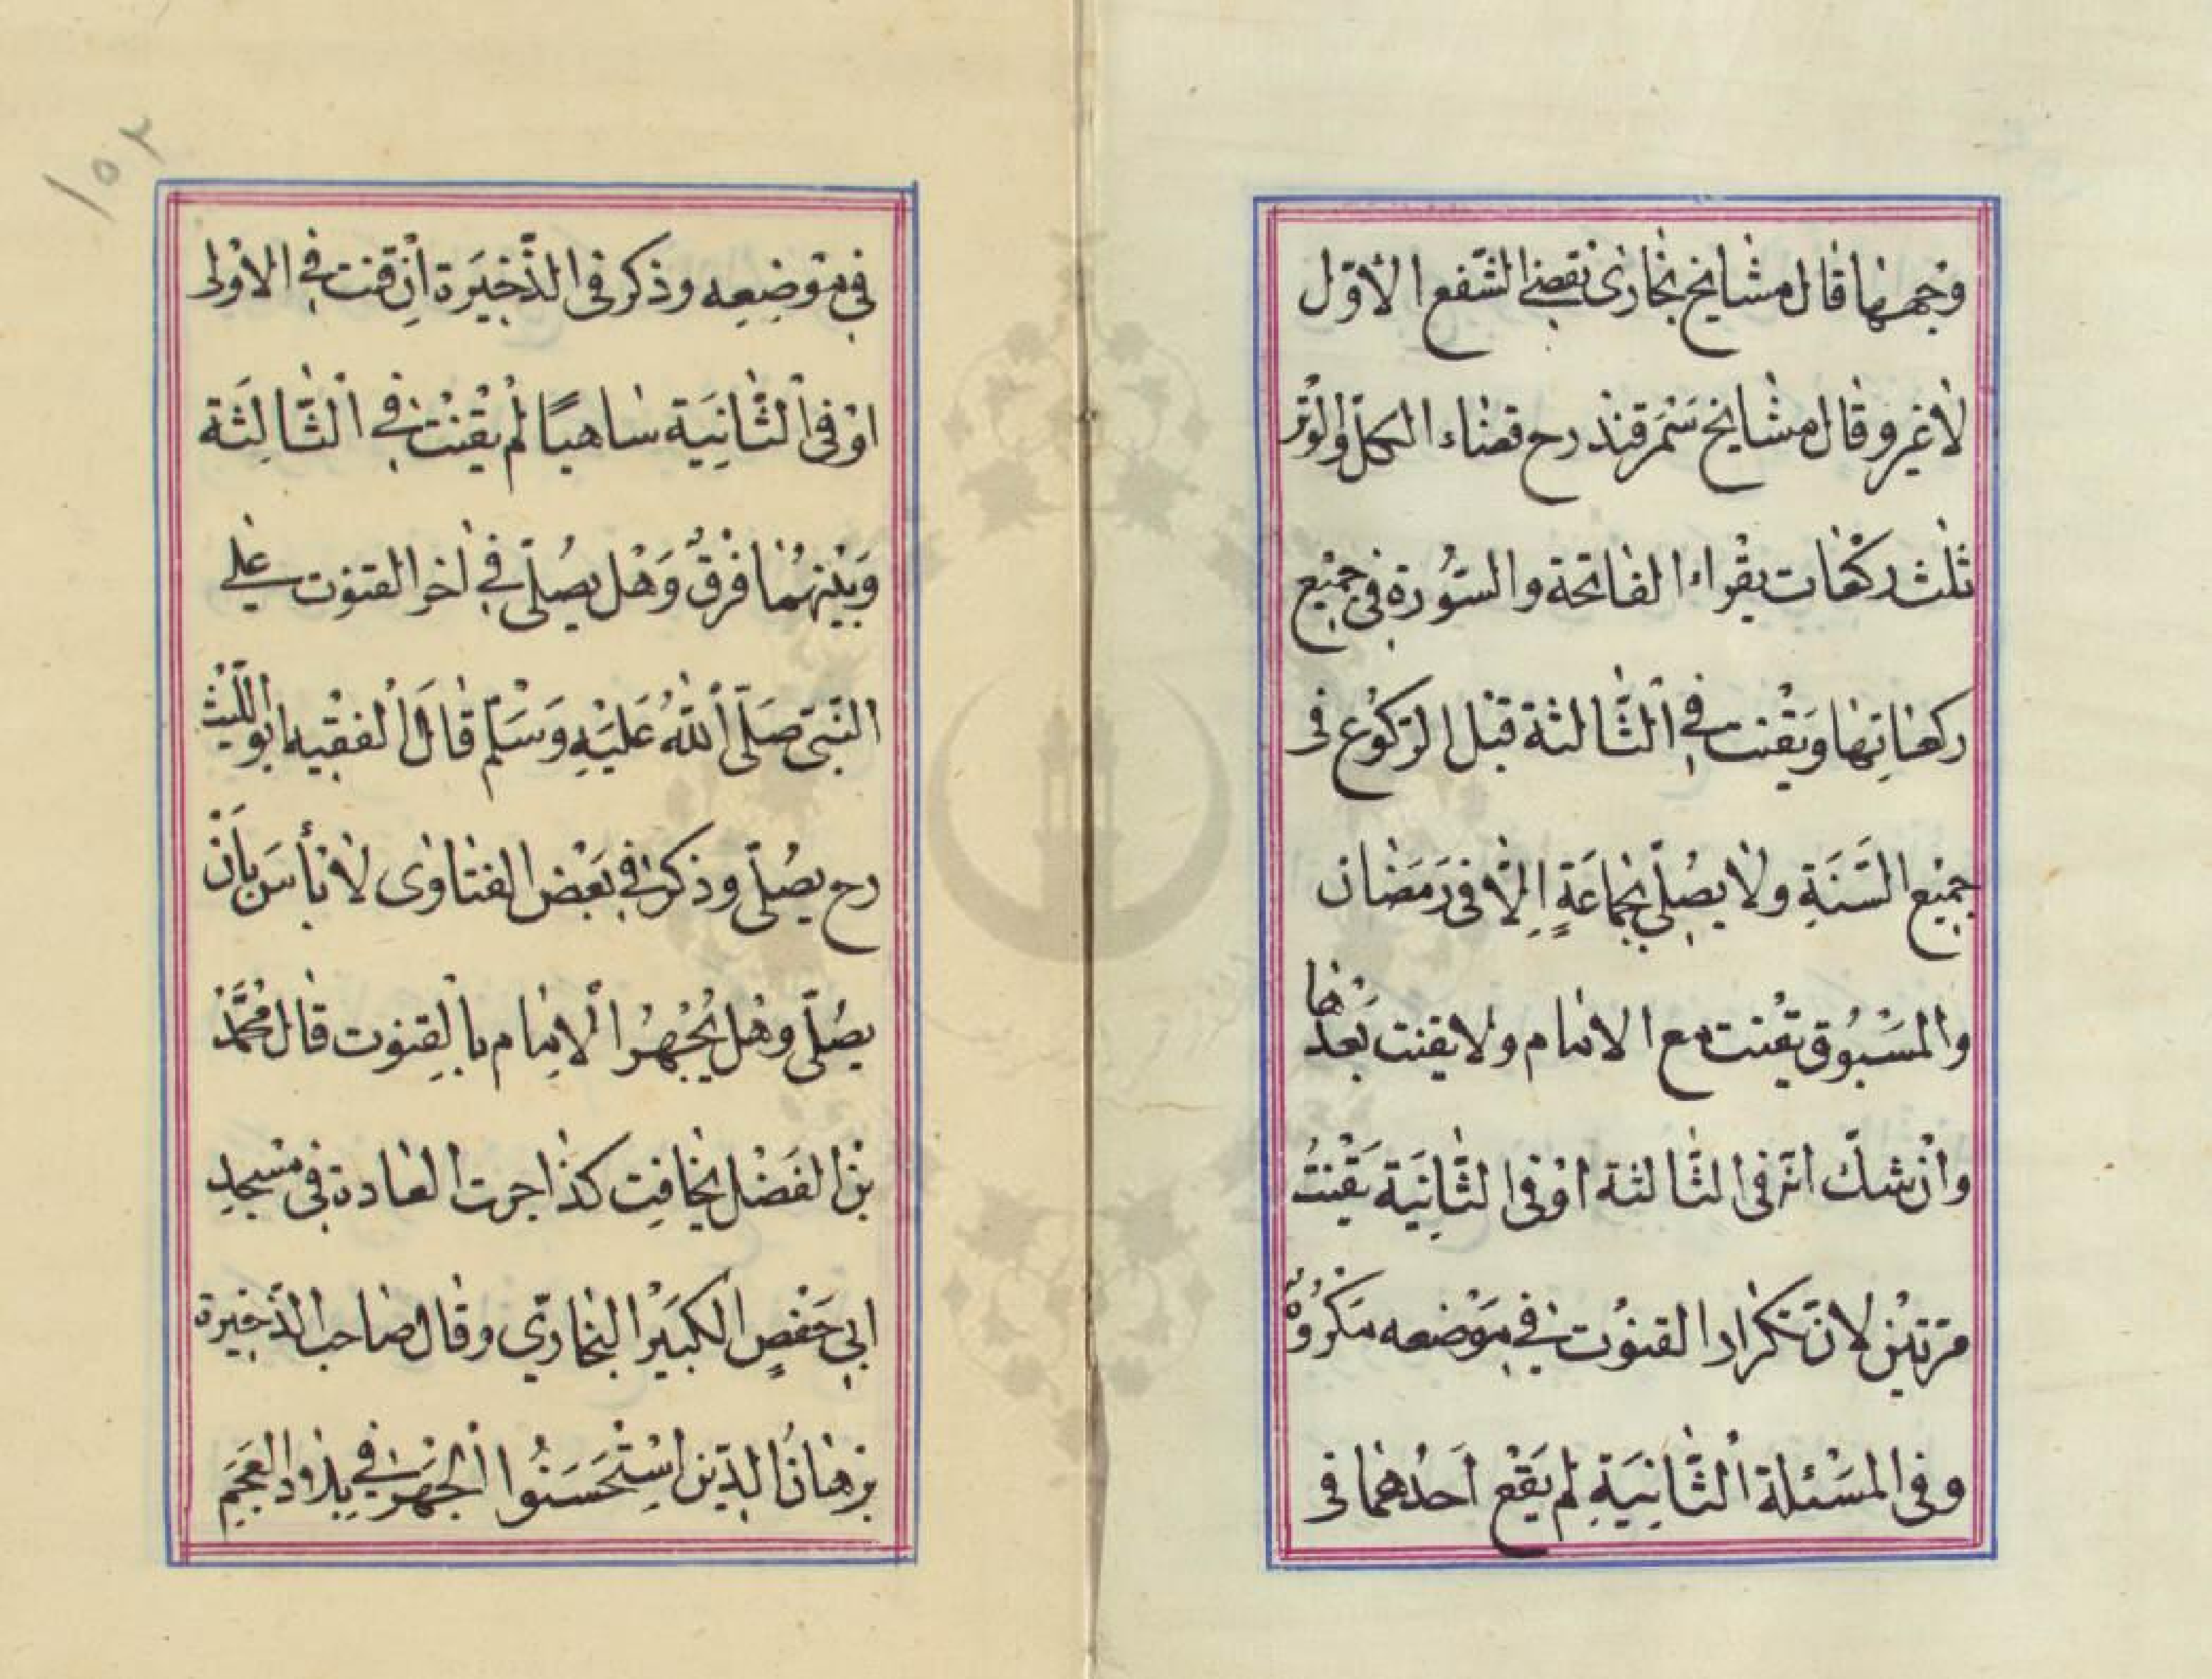 وجهها قال مشايخ بخارى نقضى الشّفع الأوّل
لا غير وقال مشايخ سَمَرقند رح قضاء الكلّ والوتر
ثلث ركعات يقراء الفاتحة والسّورة فى جميع
ركعاتها وَيقنت فى الثّالثة قبل الرّكوُع فى
جميع السَّنَةِ ولا يصُلّى بجماعَةٍ اِلّا فى رَمَضان
والمسْبُوق يقنت مع الامام ولا يقنت بَعْدها
وانْ شكّ انّه فى الثّالثة اوْ فى الثّانِيَة يَقْنتُ
مرّتيْن لانّ تكرار القنوُت فى مَوْضعه مَكرُوُهٌ
وفى المسْئلة الْثّانِيَةِ لم يَقعْ اَحدُهما فى
١٥٢
فى مَوْضِعِه وذكر فى الذّخيَرة اِنْ قنت فى الاوْلى
اوْ فى الثّانِيَة ساهيًا لم يقْنتْ فى الثّالِثَة
وَبَيْنهُمَا فرْقٌ وَهَل يصُلّى فى اخر القنوت على
النّبىّ صَلّى اللّهُ عَليْهِ وَسَلّم قالَ الفقيه ابو اللّيث
رح يصُلّى وذكر فى بَعْض الفتاوى لا بأسَ بِاَنْ
يصُلّى وهل يُجْهرُ الْاِمام بالقنوت قال محَمَّدْ
بنْ الفَضْل يخافِت كذا جرت العادة فى مسْجدِ
ابى حَفْصٍ الكبَيْر البخارىّ وقال صاحب الذّخيرة
برْهانُ الدّين اسْتَحْسَنُوا الْجَهْر فى بِلاد العَجَمِ